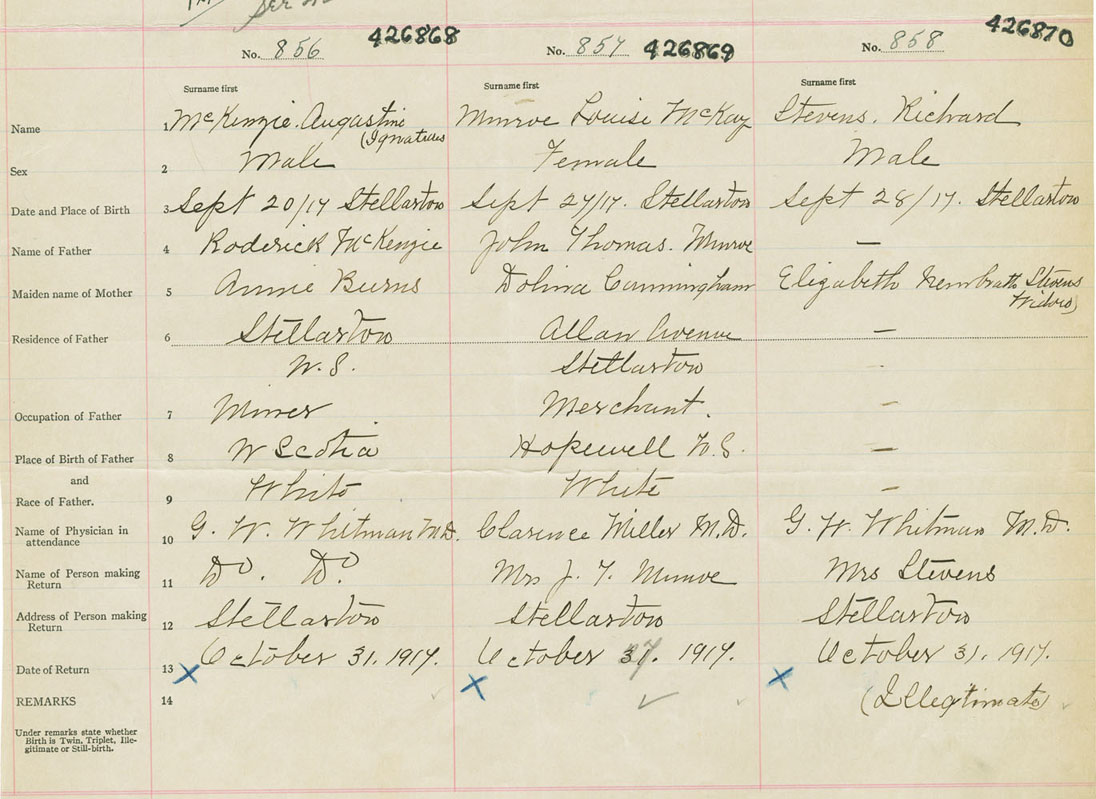 No. 856 426868 No. 857 426869 No. 858 426870
Surname first Surname first Surname first
Name 1 McKenzie. Augastine Munroe Louise McKay Stevens. Richard
(Ignatius
Sex 2 Male Female Male
Date and Place of Birth 3 Sept 20/17 Stellarton Sept 27/17. Stellarton Sept 28/17. Stellarton
Name of Father 4 Roderick McKenzie John Thomas. Munroe —
Maiden name of Mother 5 Annie Burns Dolina Cunningham Elizabeth Stevens
Widow)
Residence of Father 6 Stellarton Allan Avenue —
N.S. Stellarton
Occupation of Father 7 Miner Merchant. —
Place of Birth of Father 8 N Scotia Hopewell N.S. —
and
Race of Father. 9 White White —
Name of Physician in attendance 10 G. W. Whitman M.D. Clarence Miller M.D. G. W. Whitman M.D.
Name of Person making Return 11 Do. Do. Mrs J. T. Munroe Mrs Stevens
Address of Person making Return 12 Stellarton Stellarton Stellarton
Date of Return 13 October 31. 1917. October 1917. October 31. 1917.
REMARKS 14 (Illegitimate)
Under remarks state whether
Birth is Twin, Triplet, Ille-
gitimate or Still-birth.